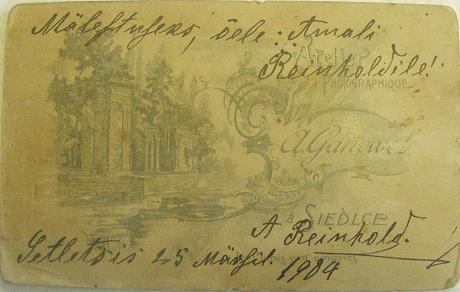 Mälestuseks, õele: Amali
Reinholdile!
Atelier
Photographique
A. Ganiwel
à Siedlce
A Reinhold.
Setletsis 25 Märsil. 1904